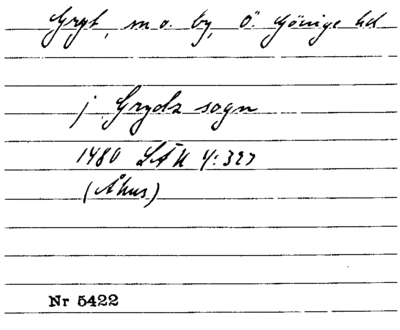 Gryt, sn o. by, Ö. Göinge hd
j Grydz sogn
1480 LÄU 4:327
(Åhus)
Nr 5422